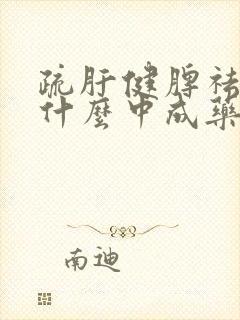 疏肝健脾祛
什麼中成藥
南迪